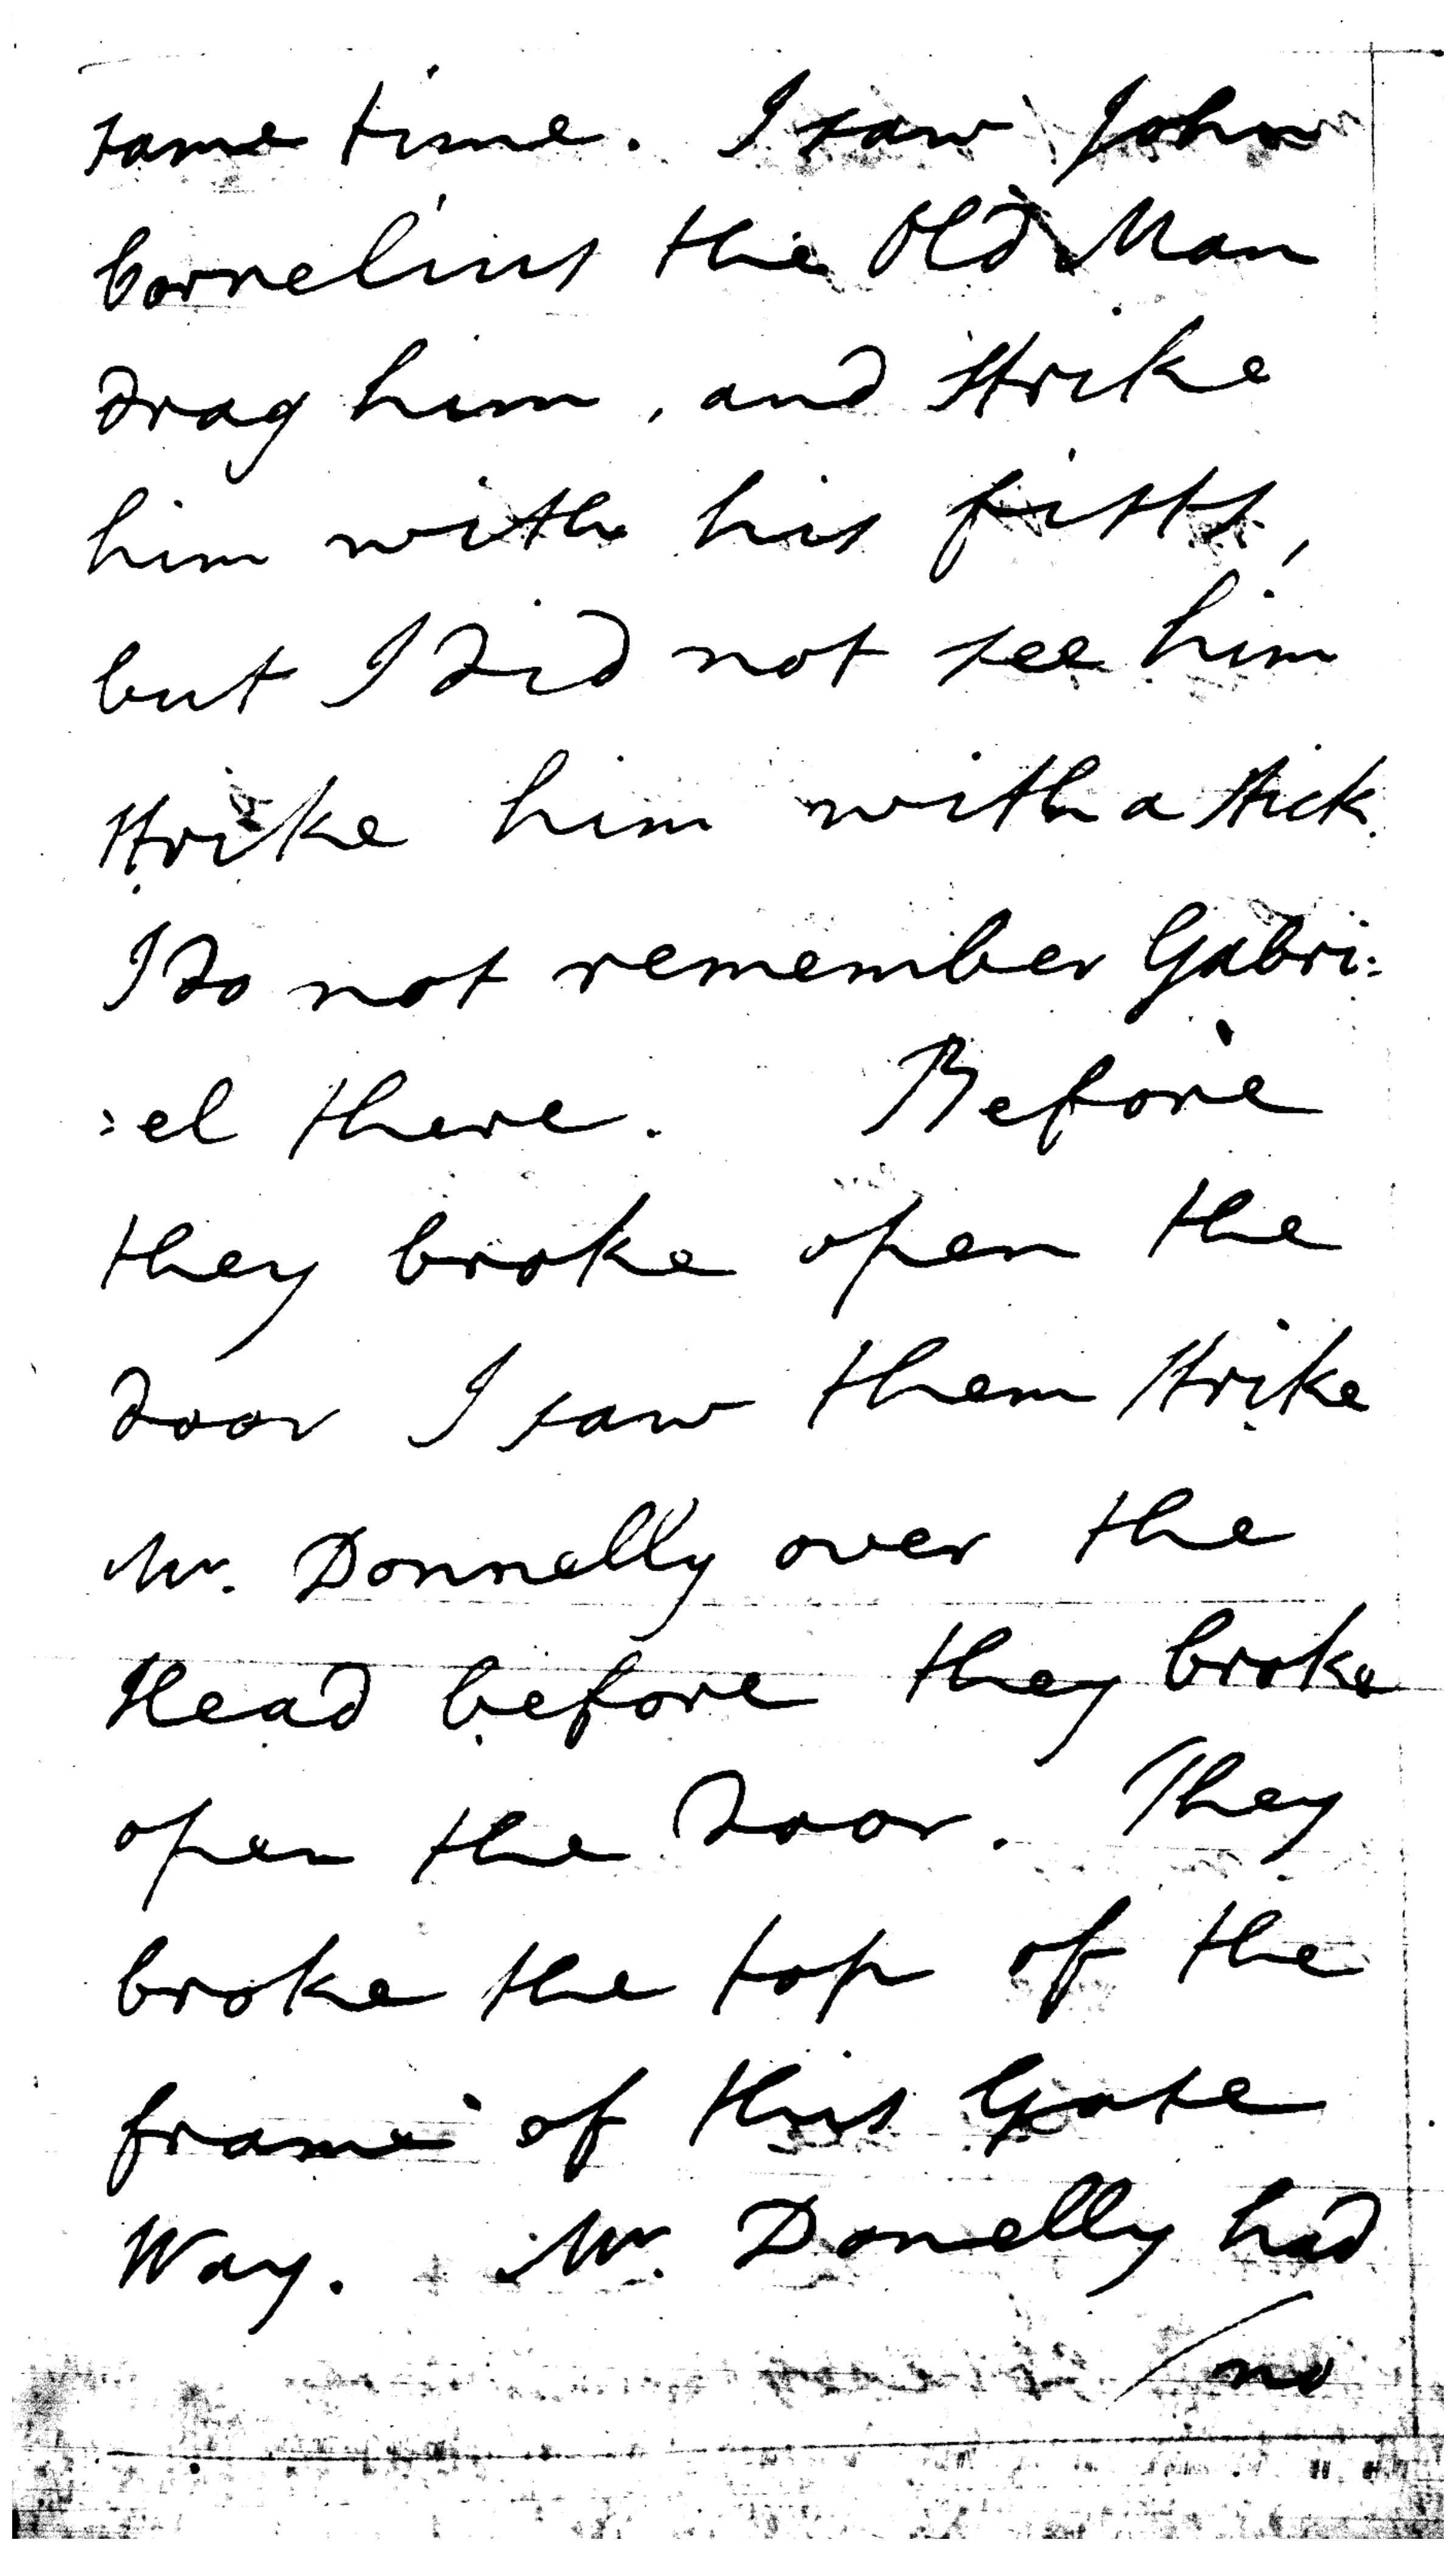 same time. I saw John
Cornelius the Old Man
drag him, and strike
him with his fists,
but I did not see him
strike him with a stick.
I do not remember Gabri:
:el there. Before
they broke open the
door I saw them strike
Mr. Donnelly over the
Head before they broke
open the door. They
broke the top of the
frame of this Gate
Way. Mr. Donelly had
/no